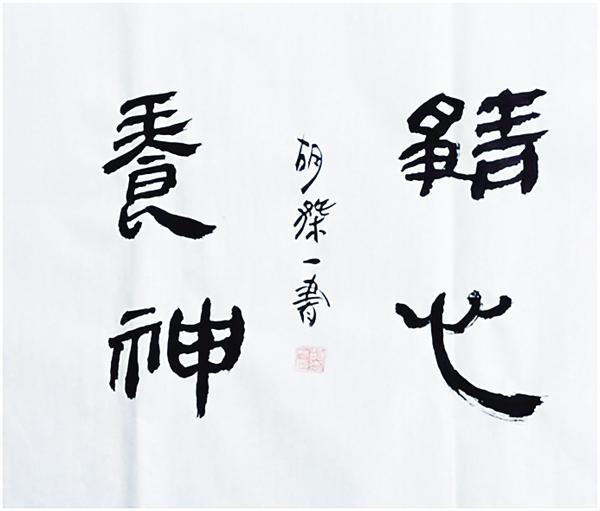 靜心
養神
胡 一書